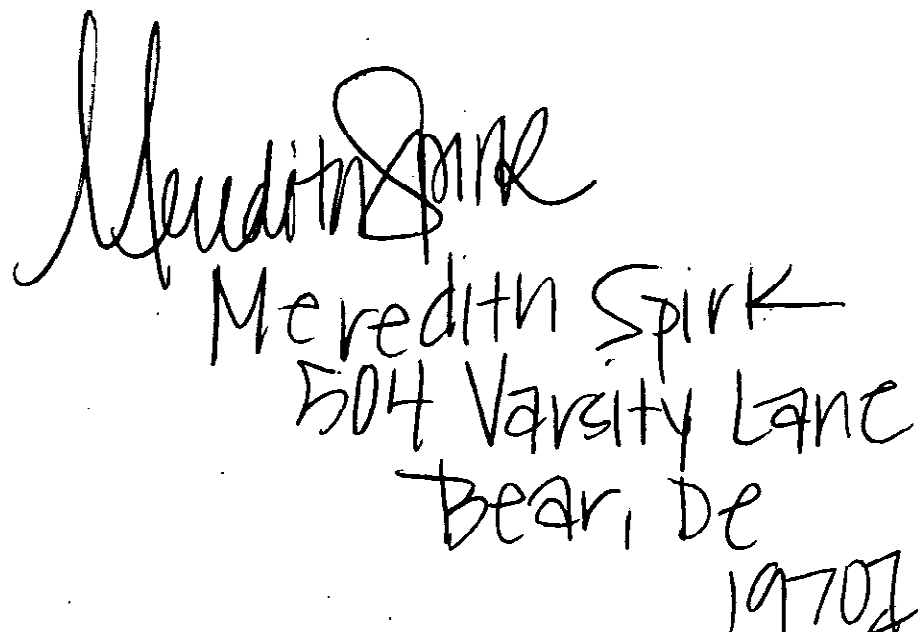 Meredith Spirk
Meredith Spirk
504 Varsity Lane
Bear, De
19702